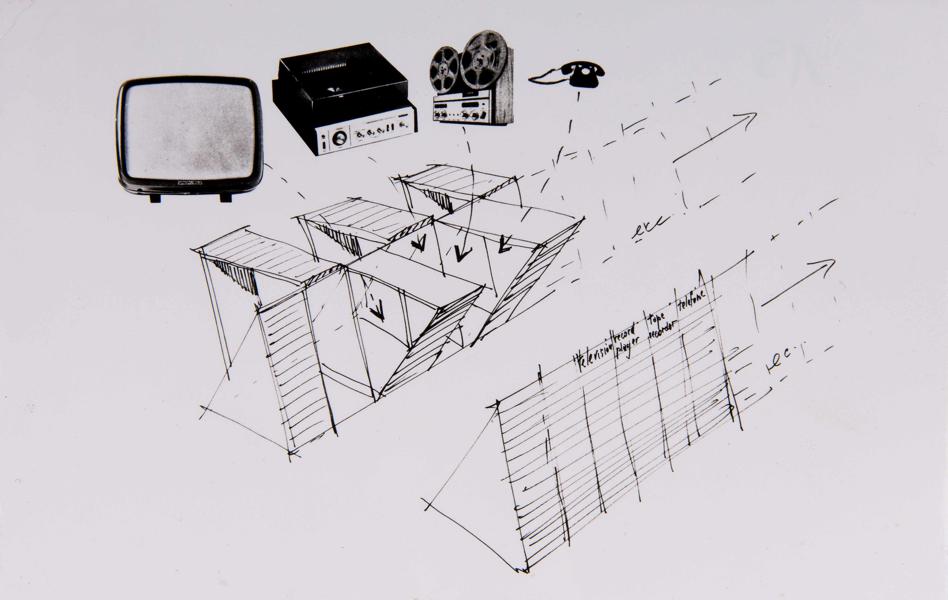 exc
television
record
player
tape
recorder
telefone
ec.